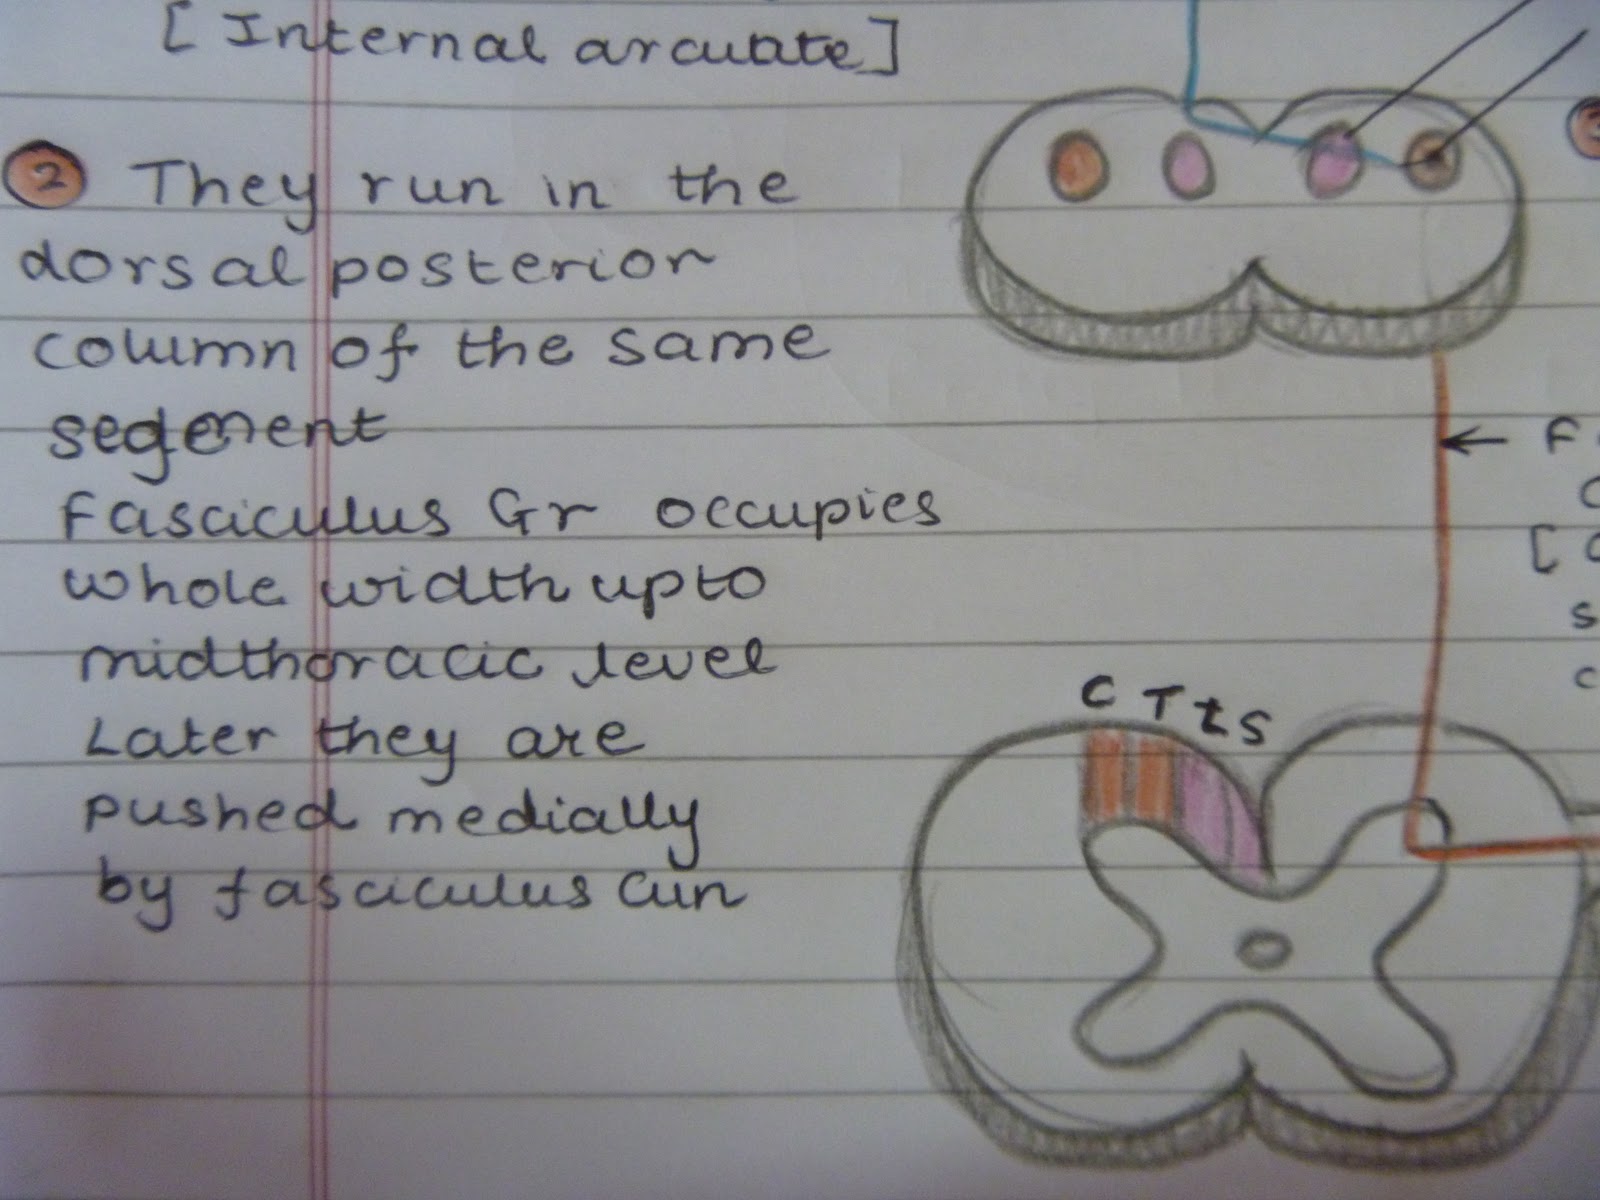 [Internal arcuate]
2 They run in the
dorsal posterior
column of the same
segment
Fasciculus Gr occupies
whole width upto
midthoracic level
Later they are
pushed medially
by fasciculus Cun
C T t S
F
[
s
c